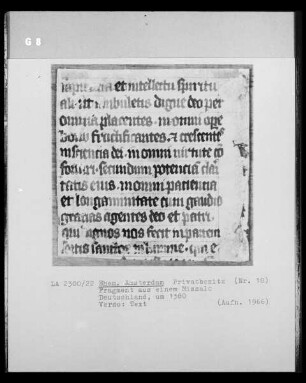 G 8
sapientia et intellectu spiritu
ali ut ambuletis digne deo per
omnia placentes in omni ope
bono fructificantes et crescentes
in sciencia dei in omni virtute co
fortati secundum potenciam clari
tatis eius in omni paciencia
et longanimitate cum gaudio
gracias agentes deo et patri
qui dignos nos fecit in partem
sortis sanctorum in lumine qui e
LA 2300/22 Ehem. Amsterdam Privatbesitz (Nr. 18)
Fragment aus einem Missale
Deutschland, um 1380
Verso: Text (Aufn. 1966)